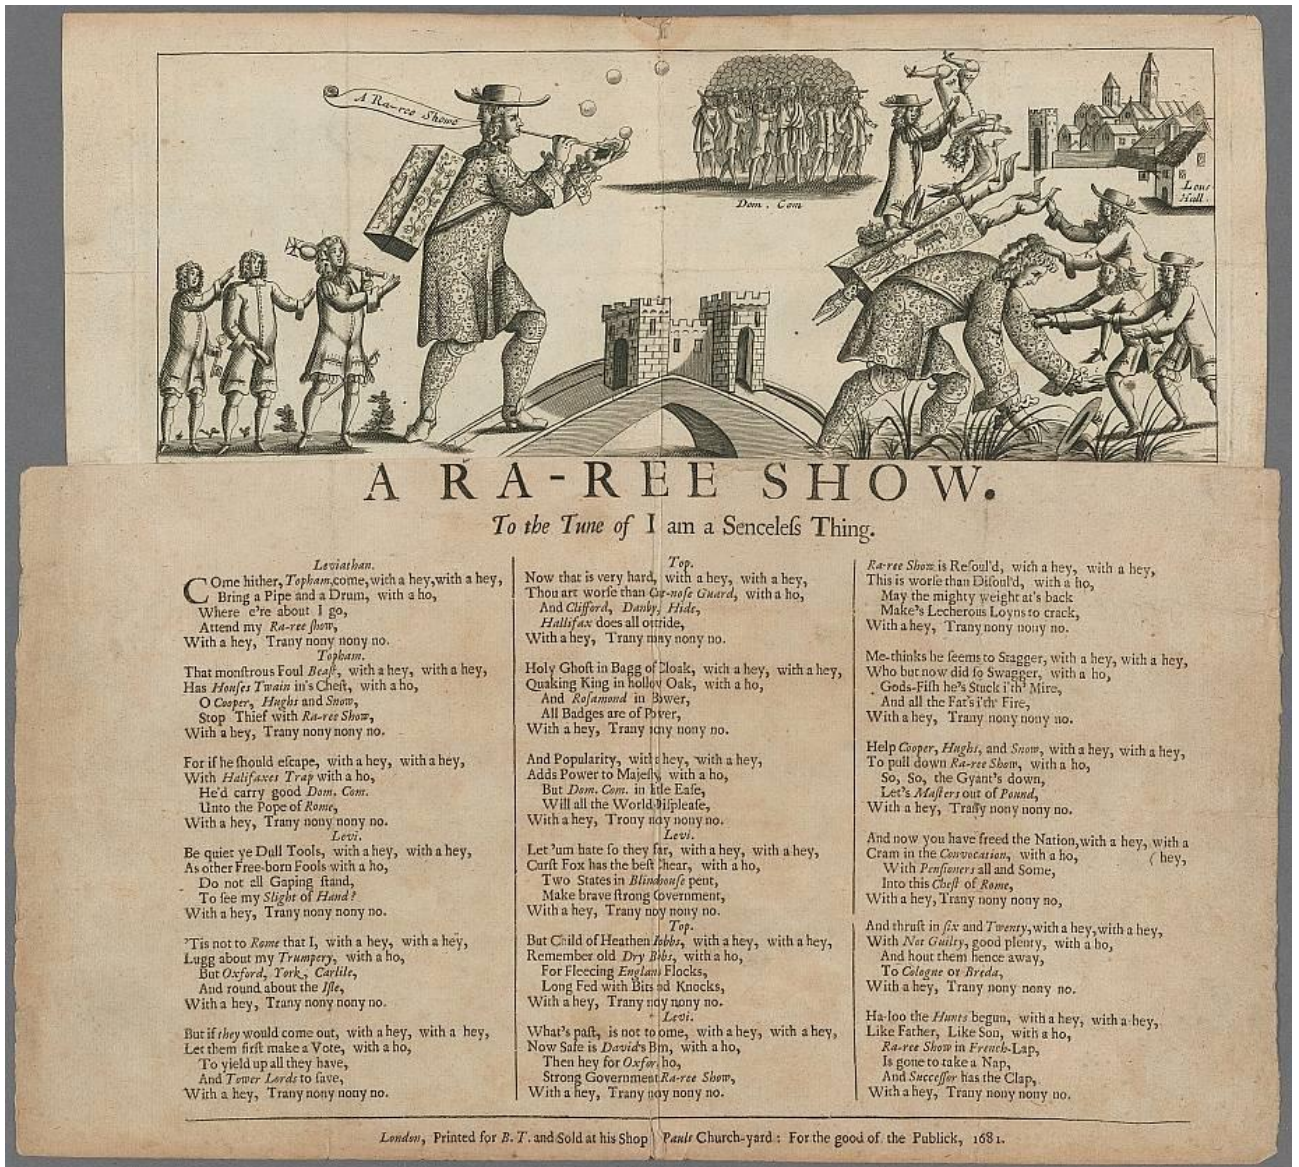 A Ra-ree Showe
Dom. Com
Lous
Hall.
A RA-REE SHOW.
To the Tune of I am a Senceleſs Thing.
Leviathan.
COme hither, Topham, come, with a hey, with a hey,
Bring a Pipe and a Drum, with a ho,
Where e're about I go,
Attend my Ra-ree ſhow,
With a hey, Trany nony nony no.
Topham.
That monſtrous Foul Beaſt, with a hey, with a hey,
Has Houſes Twain in's Cheſt, with a ho,
O Cooper, Hughs and Snow,
Stop Thief with Ra-ree Show,
With a hey, Trany nony nony no.
For if he ſhould eſcape, with a hey, with a hey,
With Halifaxes Trap with a ho,
He'd carry good Dom. Com.
Unto the Pope of Rome,
With a hey, Trany nony nony no.
Levi.
Be quiet ye Dull Tools, with a hey, with a hey,
As other Free-born Fools with a ho,
Do not all Gaping ſtand,
To ſee my Slight of Hand?
With a hey, Trany nony nony no.
'Tis not to Rome that I, with a hey, with a hey,
Lugg about my Trumpery, with a ho,
But Oxford, York, Carlile,
And round about the Iſle,
With a hey, Trany nony nony no.
But if they would come out, with a hey, with a hey,
Let them firſt make a Vote, with a ho,
To yield up all they have,
And Tower Lords to ſave,
With a hey, Trany nony nony no.
Top.
Now that is very hard, with a hey, with a hey,
Thou art worſe than Cut-noſe Guard, with a ho,
And Clifford, Danby, Hide,
Hallifax does all outride,
With a hey, Trany nony nony no.
Holy Ghoſt in Bagg of Cloak, with a hey, with a hey,
Quaking King in hollow Oak, with a ho,
And Roſamond in Bower,
All Badges are of Power,
With a hey, Trany nony nony no.
And Popularity, with a hey, with a hey,
Adds Power to Majeſty, with a ho,
But Dom. Com. in little Eaſe,
Will all the World Diſpleaſe,
With a hey, Trony nony nony no.
Levi.
Let 'um hate ſo they fear, with a hey, with a hey,
Curſt Fox has the beſt Chear, with a ho,
Two States in Blindhouſe pent,
Make brave ſtrong Government,
With a hey, Trany nony nony no.
Top.
But Child of Heathen Hobbs, with a hey, with a hey,
Remember old Dry Bobs, with a ho,
For Fleecing England Flocks,
Long Fed with Bits and Knocks,
With a hey, Trany nony nony no.
Levi.
What's paſt, is not to come, with a hey, with a hey,
Now Safe is David's Bum, with a ho,
Then hey for Oxford ho,
Strong Government Ra-ree Show,
With a hey, Trany nony nony no.
Ra-ree Show is Reſoul'd, with a hey, with a hey,
This is worſe than Diſoul'd, with a ho,
May the mighty weight at's back
Make's Lecherous Loyns to crack,
With a hey, Trany nony nony no.
Me-thinks he ſeems to Stagger, with a hey, with a hey,
Who but now did ſo Swagger, with a ho,
Gods-Fiſh he's Stuck i'th' Mire,
And all the Fat's i'th' Fire,
With a hey, Trany nony nony no.
Help Cooper, Hughs, and Snow, with a hey, with a hey,
To pull down Ra-ree Show, with a ho,
So, So, the Gyant's down,
Let's Maſters out of Pound,
With a hey, Trany nony nony no.
And now you have freed the Nation, with a hey, with a
Cram in the Convocation, with a ho, ( hey,
With Penſioners all and Some,
Into this Cheſt of Rome,
With a hey, Trany nony nony no,
And thruſt in ſix and Twenty, with a hey, with a hey,
With Not Guilty, good plenty, with a ho,
And hout them hence away,
To Cologne or Breda,
With a hey, Trany nony nony no.
Ha-loo the Hunts begun, with a hey, with a hey,
Like Father, Like Son, with a ho,
Ra-ree Show in French-Lap,
Is gone to take a Nap,
And Succeſſor has the Clap,
With a hey, Trany nony nony no.
London, Printed for B. T. and Sold at his Shop Pauls Church-yard: For the good of the Publick, 1681.